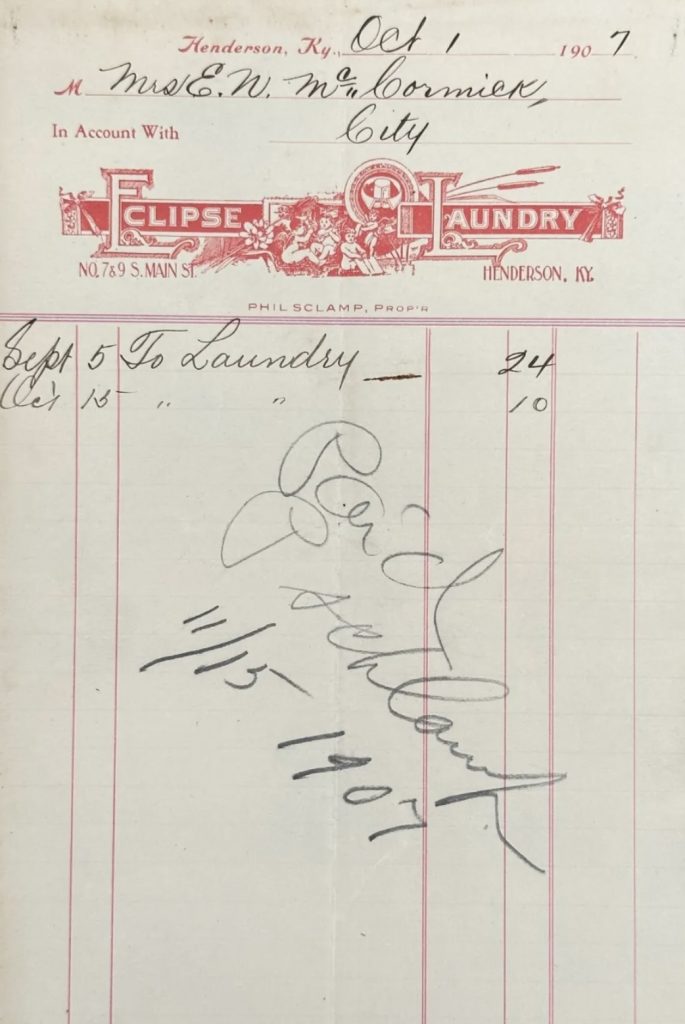 Henderson, Ky., Oct 1 1907
M Mrs E. W. McCormick,
In Account With City
ECLIPSE LAUNDRY
NO. 7 & 9 S. MAIN ST. HENDERSON, KY.
PHIL SCLAMP, PROP'R
Sept 5 To Laundry — 24
Oct 15 " " 10
Paid
Schlamp
11/15
1907